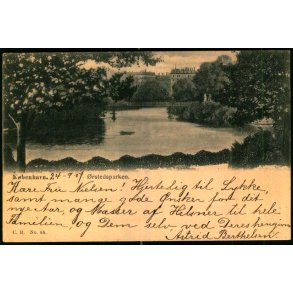 København. 24-9-07 Ørstedsparken.
Kære Fru Nielsen! Hjertelig til Lykke,
samt mange gode Ønsker for det
nye Aar, og Masser af Hilsner til hele
Familien, og Dem selv ved Deres hengivne
C. R. No. 48. Astrid Berthelsen.